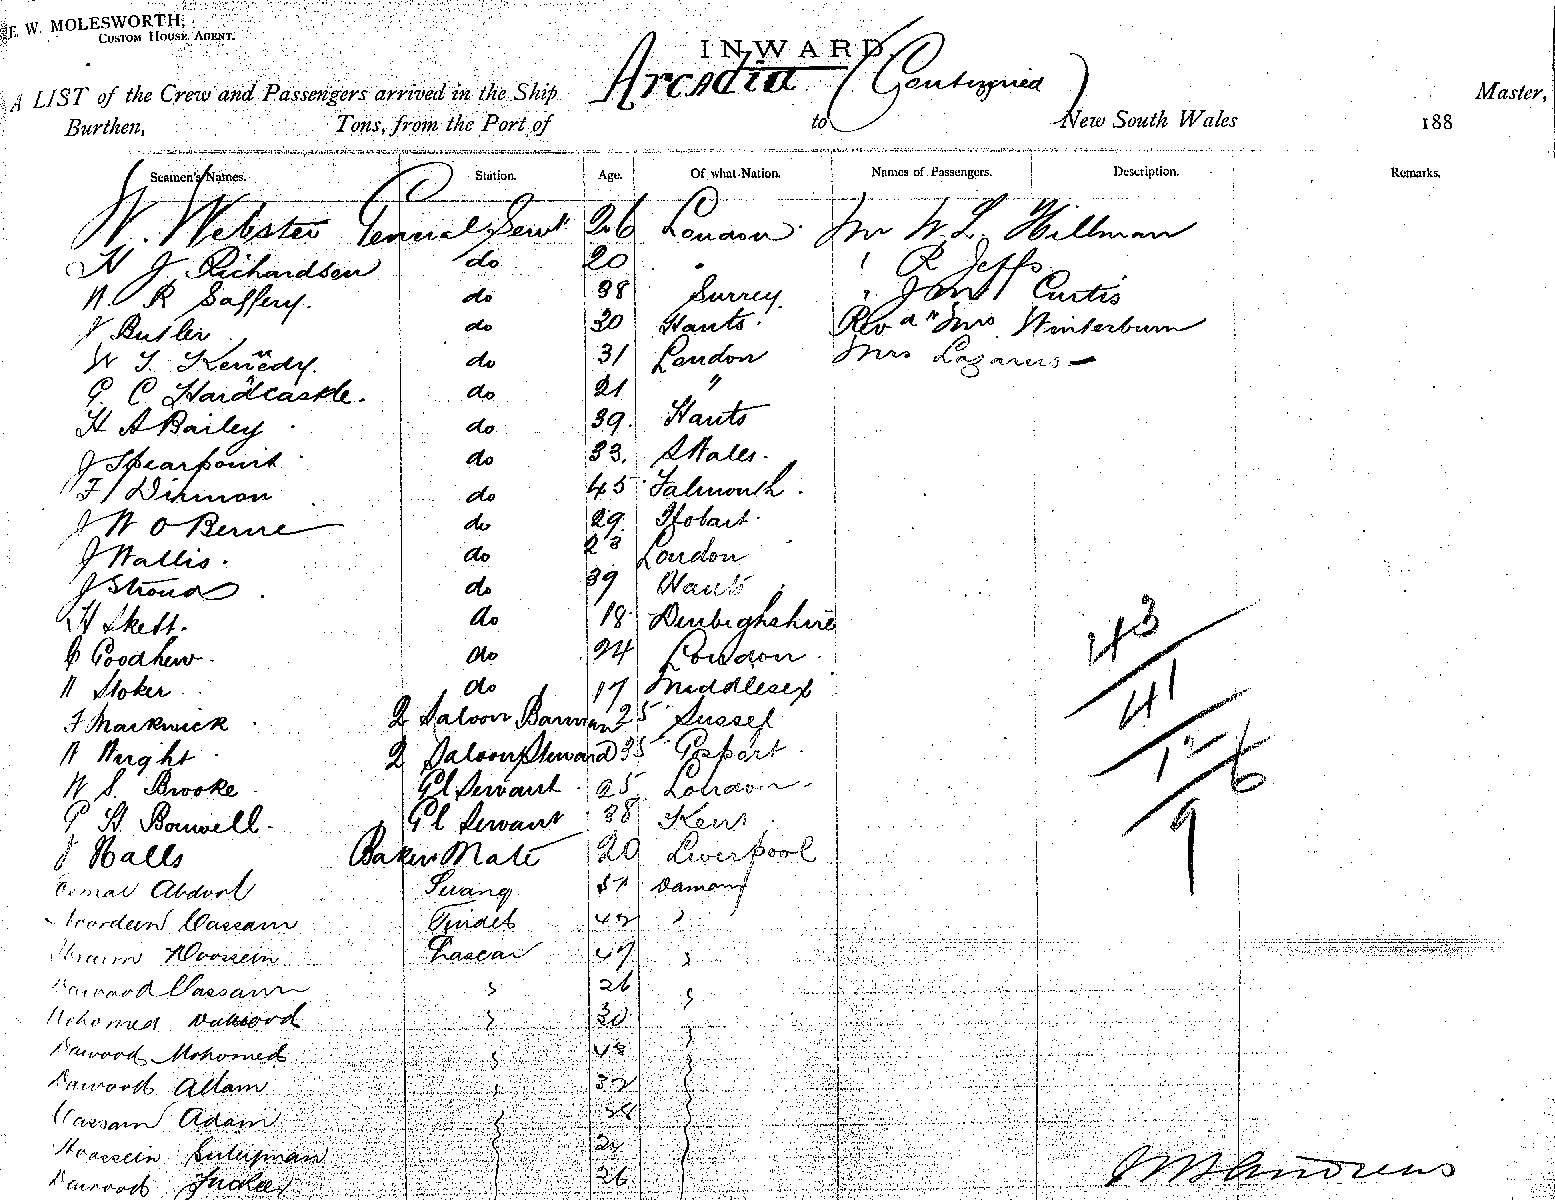 E. W. MOLESWORTH,
CUSTOM HOUSE AGENT.
INWARD
A LIST of the Crew and Passengers arrived in the Ship Arcadia (Continued) Master,
Burthen, Tons, from the Port of to New South Wales 188
Seamen's Names. Station. Age. Of what Nation. Names of Passengers. Description. Remarks.
W. Webster General Servt 26 London Mr W. L. Hillman
H J Richardson do 20 " " R Jeffs
W. R Saffery. do 38 Surrey " Curtis
J Butler do 30 Hants. Rev & Mrs Winterburn
W T Kennedy. do 31 London Mrs Lazarus
G. C Hardcastle. do 21 "
H A Bailey do 39. Hants
J Spearpoint do 33. S Wales.
F Dinmon do 45 Falmouth.
J W O Berne do 29. Hobart.
J Wallis. do 23 London
J Stroud do 39 Hants
H Skett. do 18 Denbighshire
Goodhew. do 24 London
W Stoker do 17 Middlesex
F Markwick 2 Saloon Barman 25 Sussex
W Wright 2 Saloon Steward 35 Gosport
W S. Brooke Gl Servant 25 London
G H Bonwell. Gl Servant 38 Kent
J Halls Bakers Mate 20 Liverpool
Abdool Damaun
Cassam Tindel 42 "
Hoossein Lascar 49 "
Dawood Cassam " 26 "
Mohomed Dawood " 30 "
Dawood Mohomed " 48 "
Dawood Allam " 32 "
Cassam Adam
Hoossein Suleyman
Dawood 26
43
41
12 6
9
Andrews